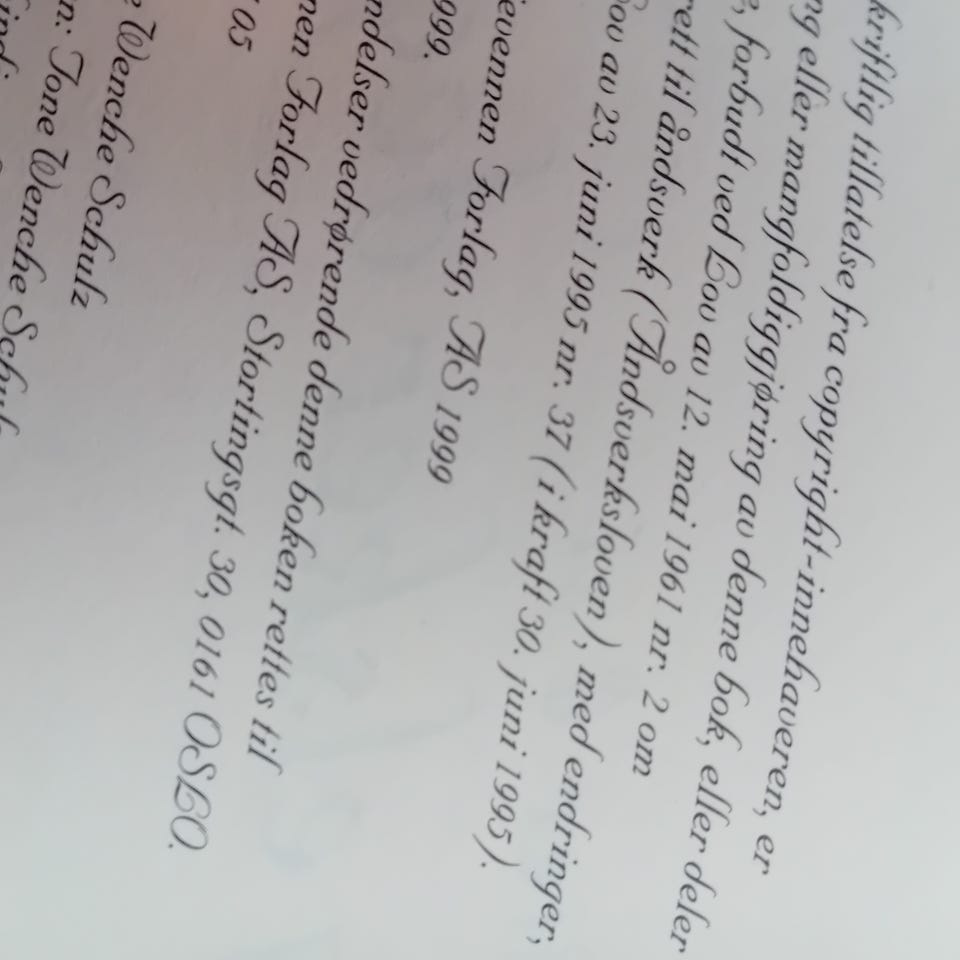 kriftlig tillatelse fra copyright-innehaveren, er
ng eller mangfoldiggjøring av denne bok, eller deler
, forbudt ved Lov av 12. mai 1961 nr. 2 om
rett til åndsverk (Åndsverksloven), med endringer,
ov av 23. juni 1995 nr. 37 (i kraft 30. juni 1995).
evennen Forlag, AS 1999
999.
ndelser vedrørende denne boken rettes til
nen Forlag AS, Stortingsgt. 30, 0161 OSLO.
05
Wenche Schulz
n: Tone Wenche Schulz
Wenche Schul